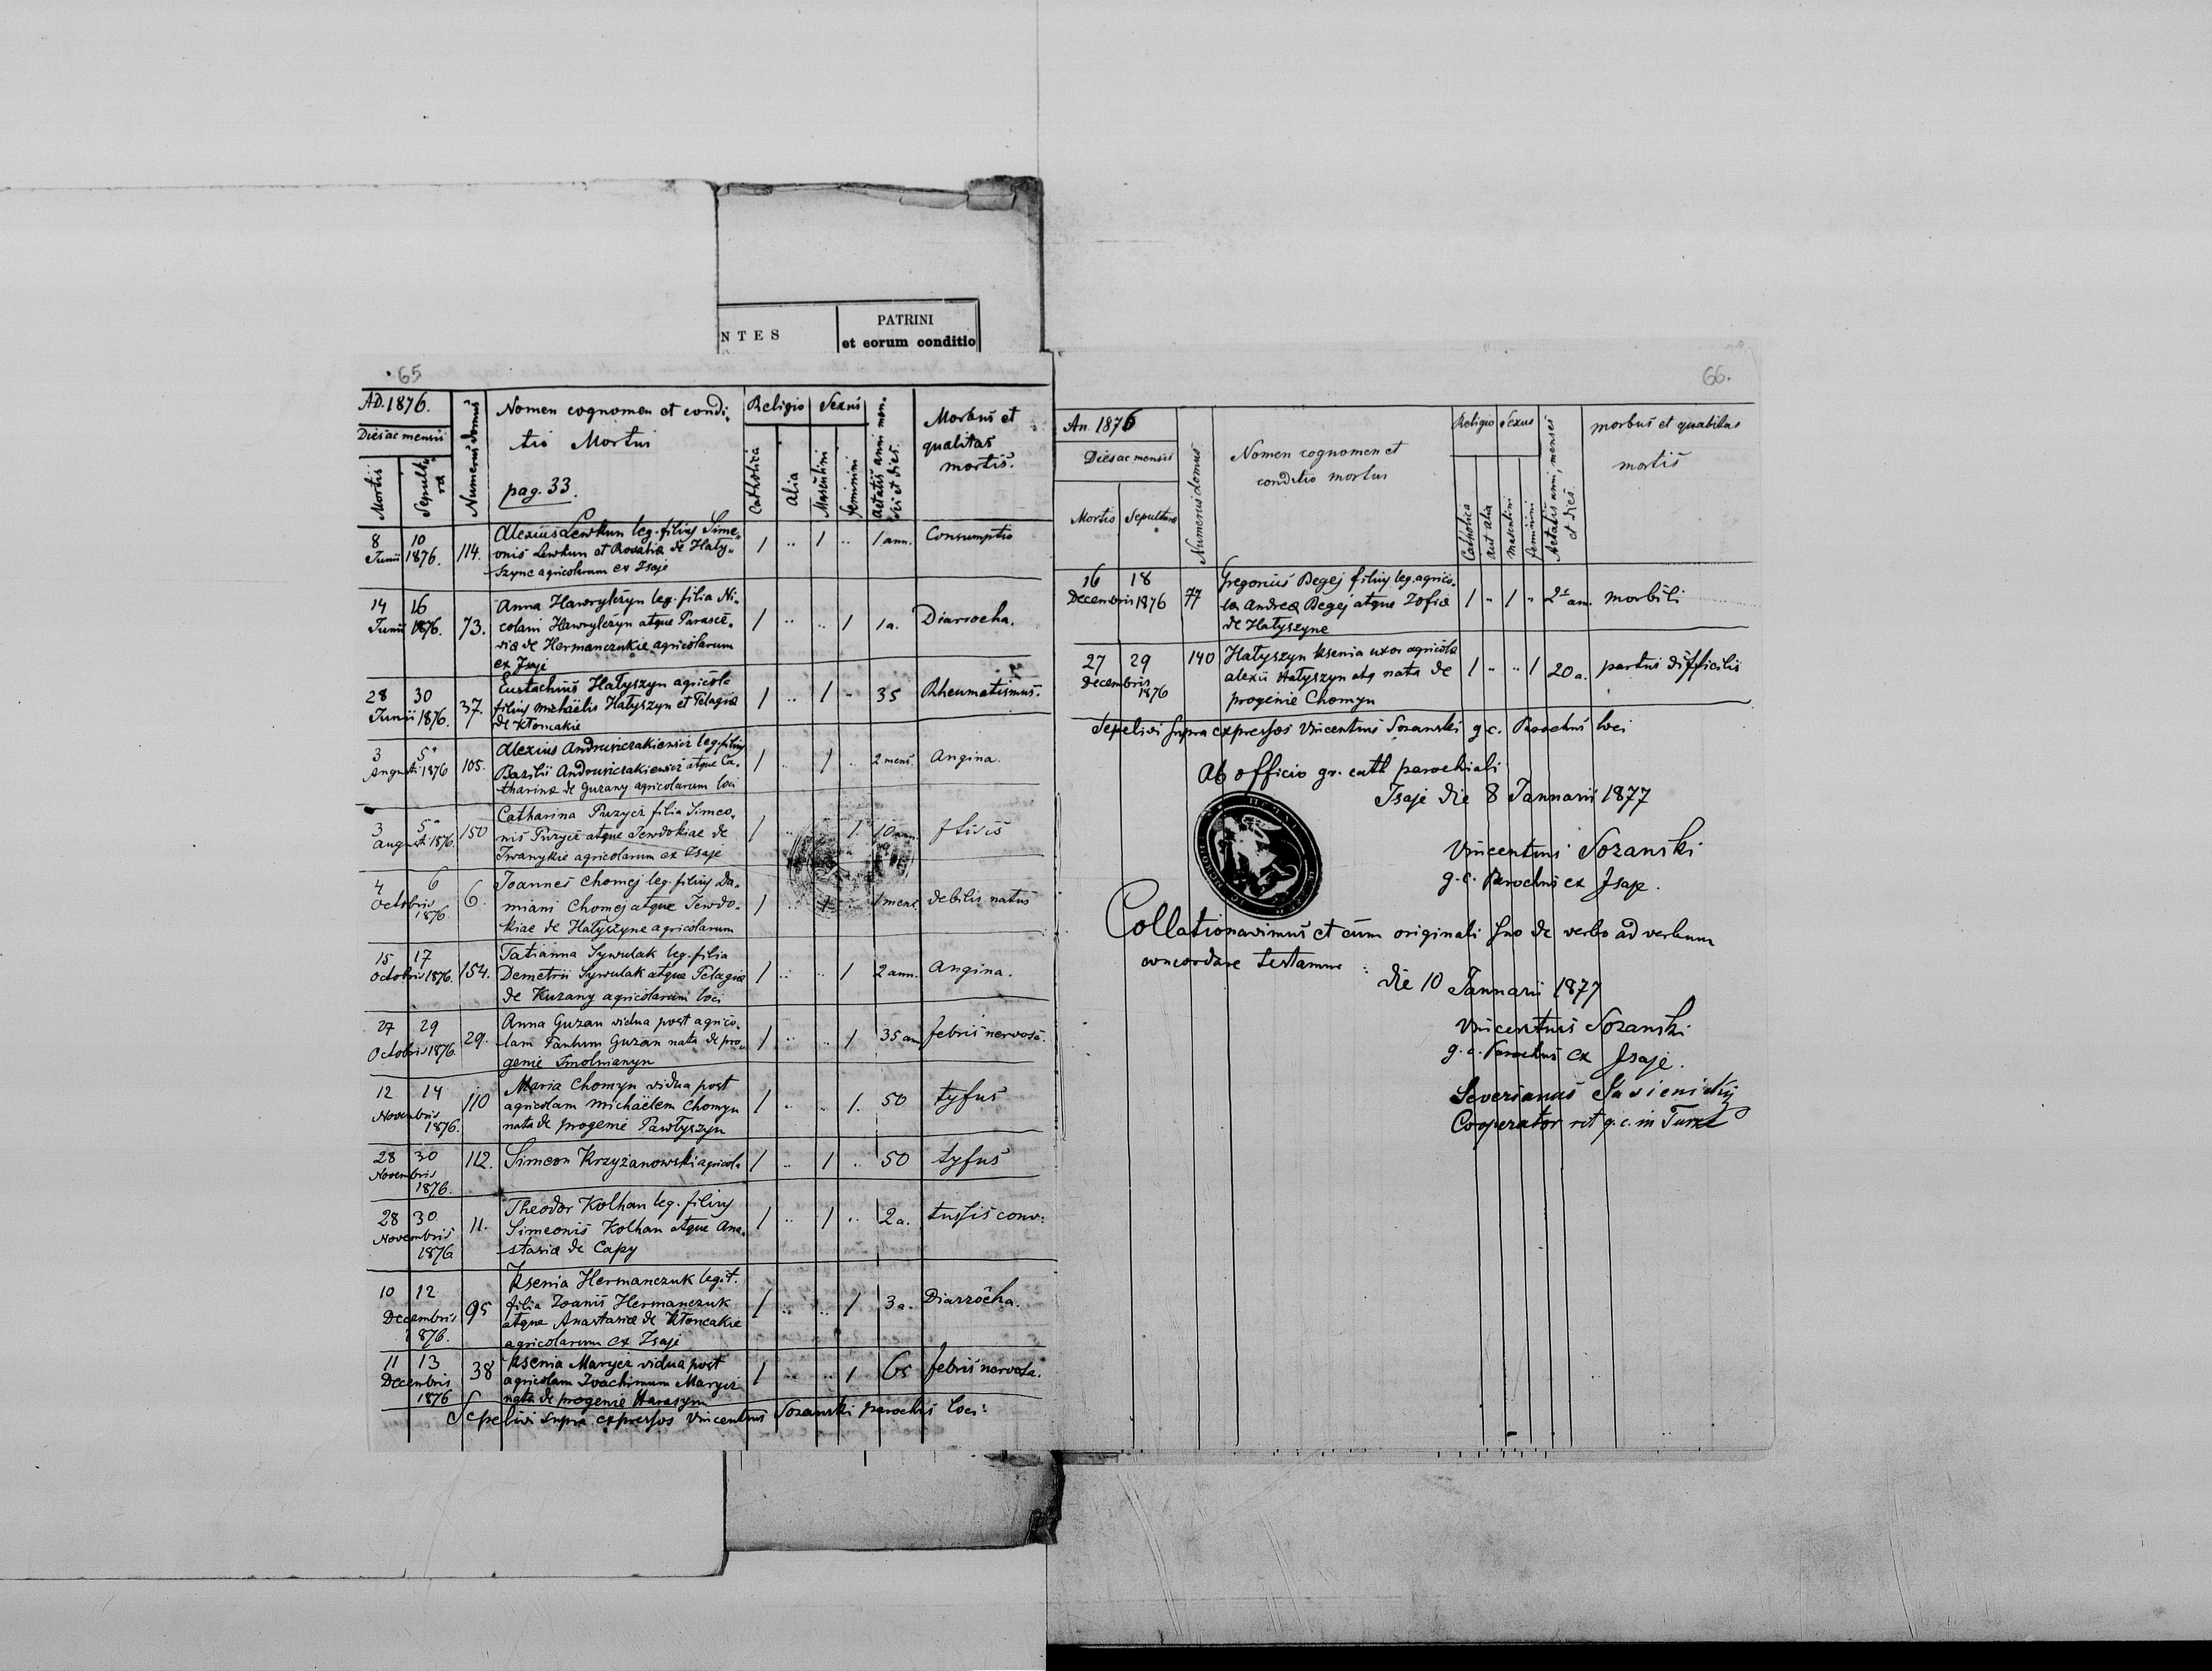 NTES
PATRINI
et eorum conditio
65
AD. 1876.
Dies ac mensis
Mortis
Sepultura
Numerus domus
Nomen cognomen et condi-
tio Mortui
pag. 33.
Religio
Catholica
Alia
Sexus
Masculini
feminini
Aetatis anni men-
ses et dies.
Morbus et
qualitas
mortis.
8 10
Junii 1876. 114. Alexius Lewkun leg. filius Sime-
onis Lewkun et Rosalia de Haty-
szyne agricolarum ex Isaje
1 .. 1 .. 1 ann. Consumptio
14 16
Junii 1876. 73. Anna Hawrylczyn leg. filia Ni-
colai Hawrylczyn atque Parasce-
via de Hermanczukie agricolarum
ex Isaje
1 .. .. 1 1 a. Diarrocha.
28 30
Junii 1876. 37. Eustachius Hałyszyn agricola
filius michäelis Hałyszyn et Pelagia
de Kłomakie
1 .. 1 .. 35 Rheumatismus.
3 5
Augusti 1876 105. Alexius Andrusiczakiewicz leg. filius
Basilii Andrusiczakiewicz atque Ca-
tharina de Guzany agricolarum loci
1 .. 1 .. 2 mens. Angina.
3 5
augusti 1876. 150 Catharina Puzycz filia Simeo-
nis Puzycz atque Jewdokiae de
Iwanykie agricolarum ex Isaje
1 .. .. 1. 10 ann. ftisis
4 6
Octobris 1876. 6. Joannes Chomej leg. filius Da-
miani Chomej atque Jewdo-
kiae de Hałyszyne agricolarum
1 .. 1 .. 1 mens. debilis natus
15 17
Octobris 1876. 154. Tatianna Sywulak leg. filia
Demetrii Sywulak atque Pelagia
de Kuzany agricolarum loci
1 .. .. 1 2 ann. Angina.
27 29
Octobris 1876. 29. Anna Guzan vidua post agrico-
lam Paulum Guzan nata de pro-
genie Smolnianyn
1 .. .. 1 35 ann febris nervosa.
12 14
Novembris 1876. 110 Maria Chomyn vidua post
agricolam michäelem Chomyn
nata de progenie Pawłyszyn
1 .. .. 1. 50 tyfus
28 30
Novembris 1876. 112. Simeon Krzyżanowski agricola
1 .. 1 .. 50 tyfus
28 30
Novembris 1876 11. Theodor Kolhan leg. filius
Simeonis Kolhan atque Ana-
stasia de Capy
1 .. 1 .. 2 a. tussis conv:
10 12
Decembris 1876. 95 Ksenia Hermanczuk legit.
filia Joanis Hermanczuk
atque Anastasia de Kłoncakie
agricolarum ex Isaje
1 .. .. 1 3 a. Diarrocha.
11 13
Decembris 1876 38 Ksenia Marycz vidua post
agricolam Joachimum Marycz
nata de progenie Harasym
1 .. .. 1 65 febris nervosa.
Sepelivi supra expressos Vincentius Sozanski parochus loci:
66.
An. 1876
Dies ac mensis
Mortis
Sepultura
Numerus domus
Nomen cognomen et
conditio mortui
Religio
Catholica
aut alia
Sexus
masculini
feminini
Aetatis anni, menses
et dies.
morbus et qualitas
mortis
16 18
Decembris 1876 77 Gregorius Begej filius leg. agrico-
la Andrea Begej atque Zofia
de Hałyszyne
1 .. 1 .. 2 an. morbili
27 29
decembris 1876 140 Hałyszyn Ksenia uxor agricola
alexii Hałyszyn atq nata de
progenie Chomyn
1 .. .. 1 20 a. partus difficilis
Sepelivi supra expressos Vincentius Sozanski g.c. Parochus loci
Ab officio gr. cath parochiali
Isaje die 8 Januarii 1877
Vincentius Sozanski
g.c. Parochus ex Isaje.
Collationavimus et cum originali suo de verbo ad verbum
concordare testamur:
die 10 Januarii 1877
Vincentius Sozanski
g.c. Parochus ex Isaje.
Severianus Jasienicky
Cooperator rit g.c. in Turze